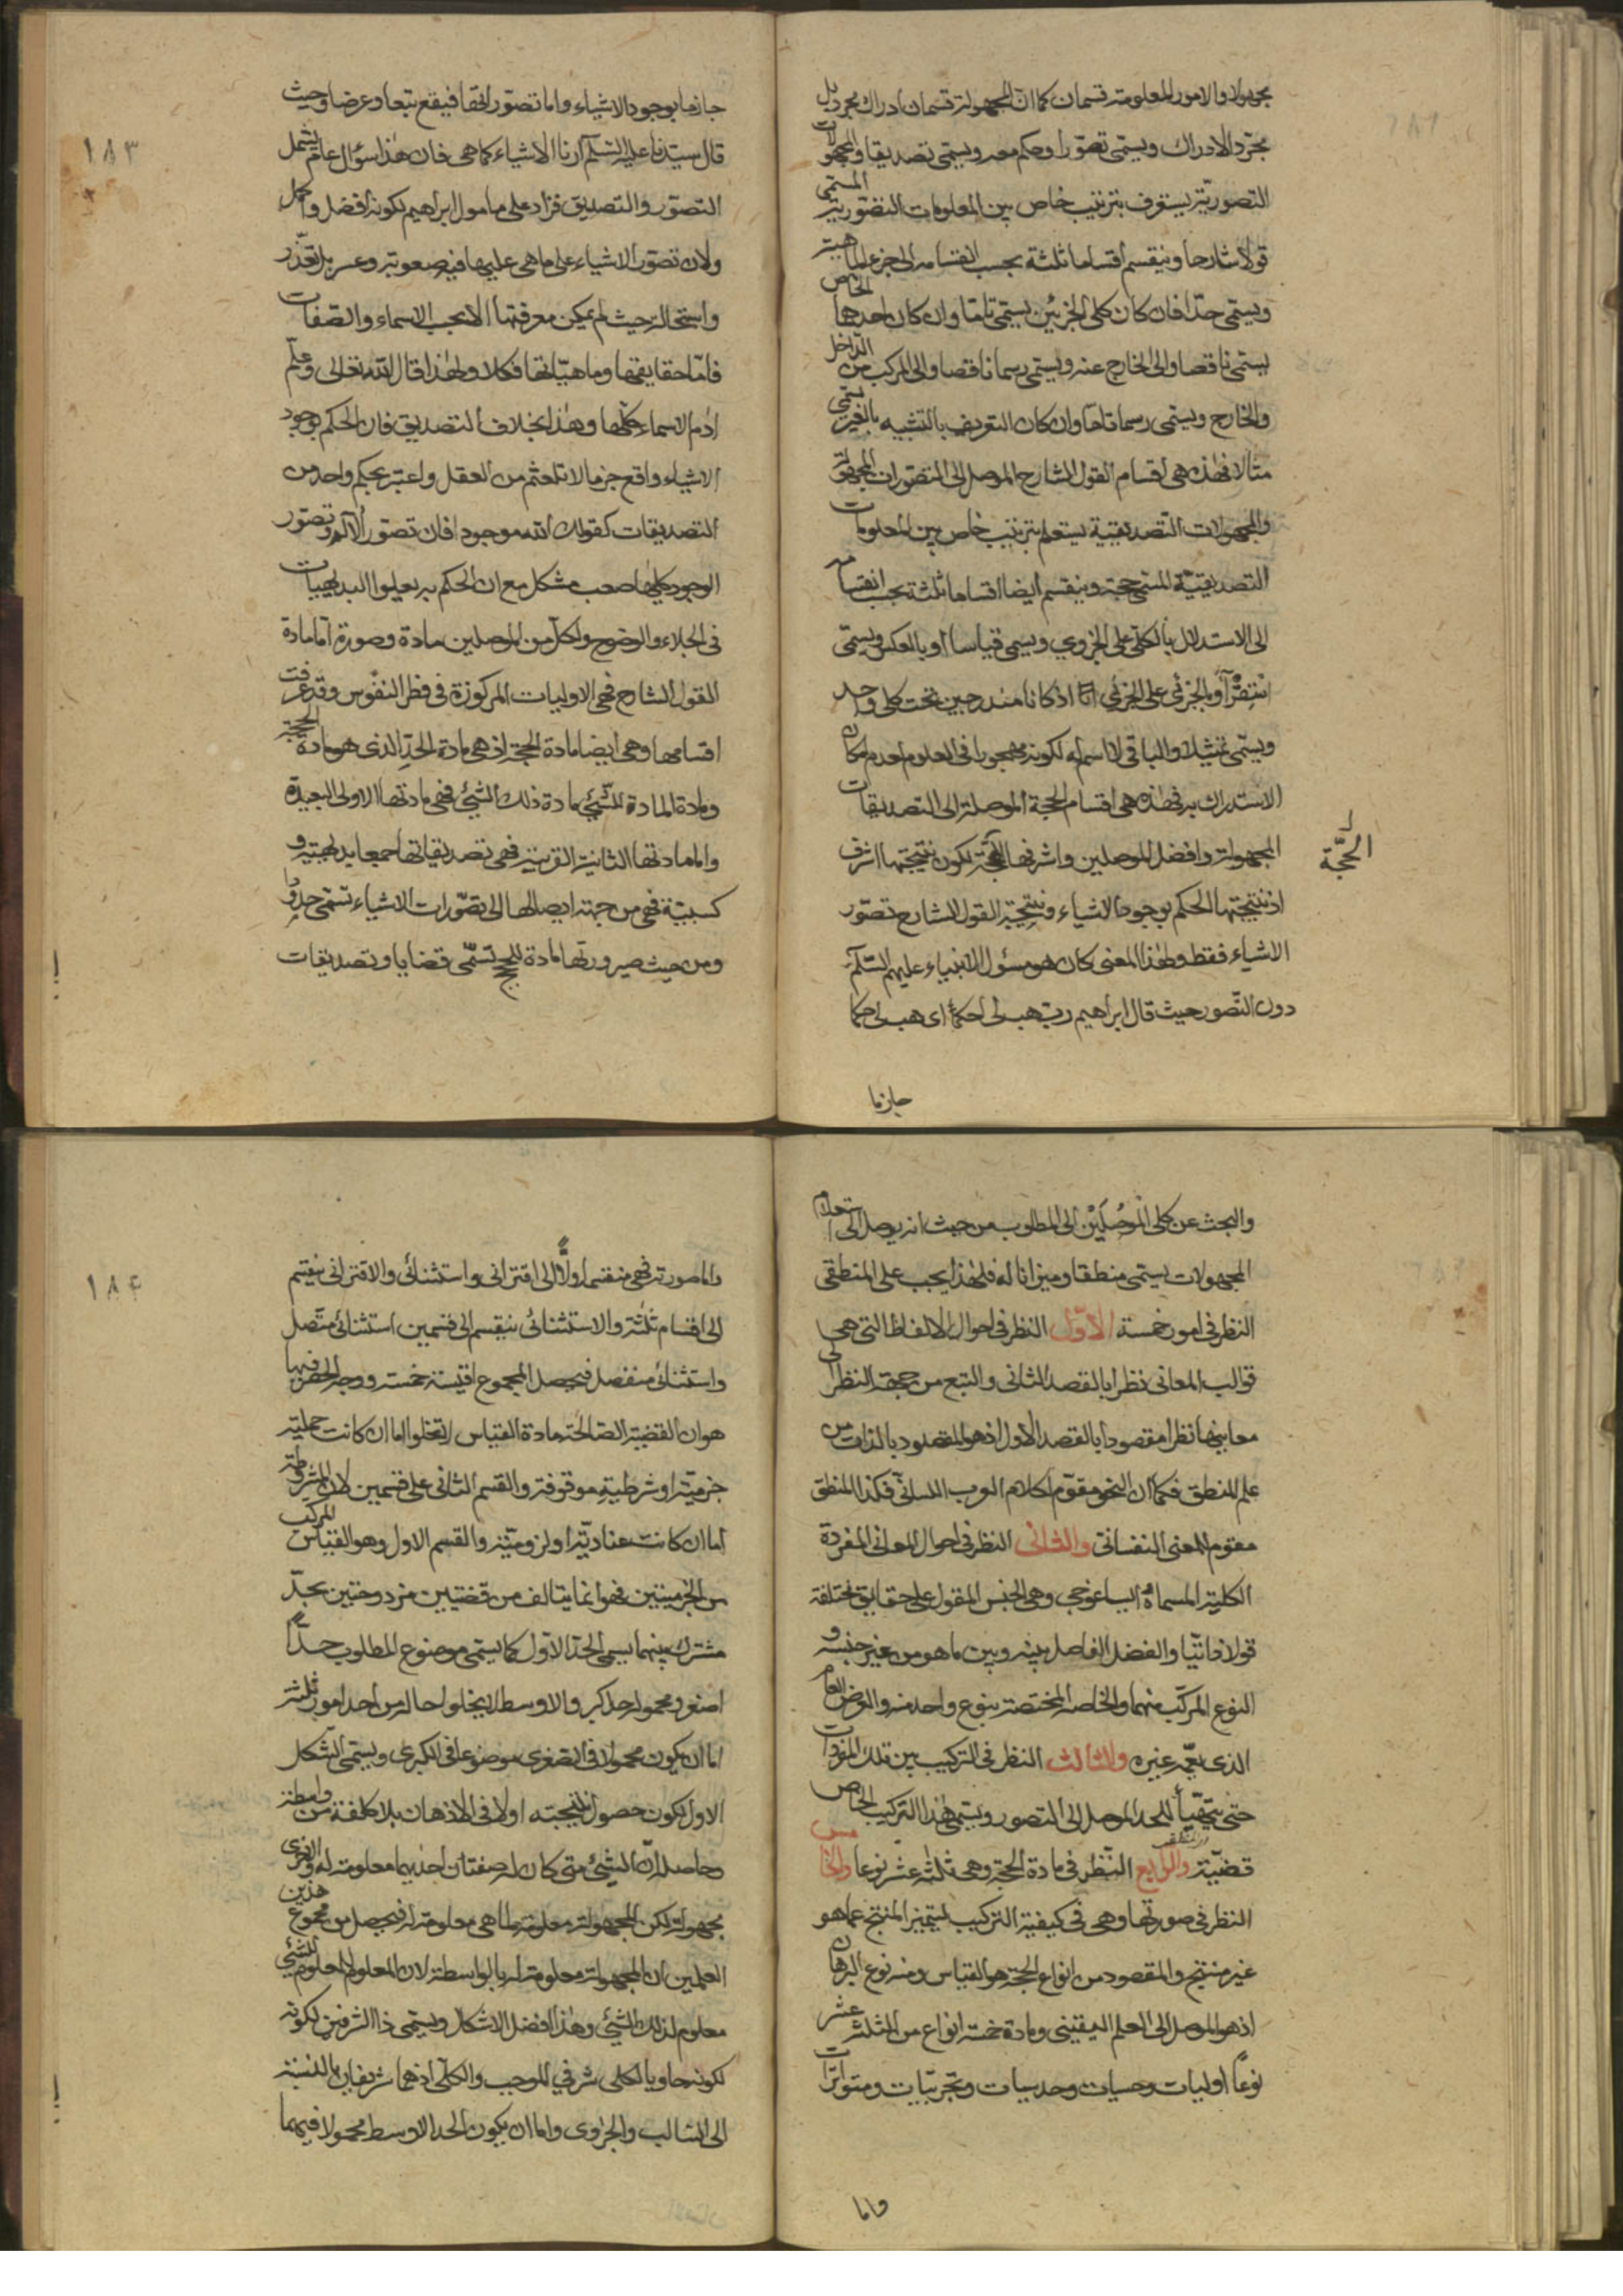 مجهولا والامور المعلومة قسمان كما ان المجهولة قسمان ادراك مجرد بل
مجرد الادراك ويسمى تصورا وحكم معه ويسمى تصديقا والمجهولات
التصورية يستعرف بترتيب خاص بين المعلومات التصورية المسمى
قولا شارحا وينقسم اقساما ثلثة بحسب انقسامه الى جزء الماهية
ويسمى حدا فان كان كلى الجزئين يسمى تاما وان كان احدهما الخاص
يسمى ناقصا والى الخارج عنه ويسمى رسما ناقصا والى المركب من الداخل
والخارج ويسمى رسما تاما وان كان التعريف بالتشبيه بالغير يسمى
مثالا فهذه هى اقسام القول الشارح الموصل الى التصورات المجهولة
والمجهولات التصديقية يستعلم بترتيب خاص بين المعلومات
التصديقية المسمى حجة وينقسم ايضا اقساما ثلثة بحسب انقسامه
الى الاستدلال بالكلى على الجزوي ويسمى قياسا أو بالعكس ويسمى
استقرآء او بالجزئي على الجزئي اذ كانا مندرجين تحت كلى واحد
ويسمى تمثيلا والباقى لا اسم له لكونه مهجورا فى العلوم لعدم مكان
الاستدراك به فهذه هى اقسام الحجة الموصلة الى التصديقات
المجهولة وافضل الموصلين واشرفها الحجة لكون نتيجتها اشرف
الحجّة
اذ نتيجتها الحكم بوجود الاشياء ونتيجة القول الشارح تصوّر
الاشياء فقط ولهذا المعنى كان هو مسئول الانبياء عليهم السّلم
دون التّصور حيث قال ابراهيم ربّ هب لى حكماً اى هب لى حكما
جازما
١٨٣
جازما بوجود الاشياء واما تصوّر الحقا فيقع تبعا وعرضا وحيث
قال سيّدنا عليه السّلم أرنا الاشياء كما هى فان هذا سؤال عام يشمل
التصوّر والتصديق فزاد على مامول ابراهيم لكونه افضل واكمل
ولان تصوّر الاشياء على ما هى عليها فيه صعوبة وعسر بل تعذّر
واستحالة حيث لم يمكن معرفتها الا بحسب الاسماء والصفات
فامّا حقايقها وماهيّاتها فكلا ولهذا قال الله تعالى وعلّم
ادم الاسماء كلّها وهذا بخلاف التصديق فان الحكم بوجود
الاشياء واقع جزما لا تلعثم من العقل واعتبر بحكم واحد من
التصديقات كقولك الله موجود فان تصوّر الآله وتصوّر
الوجود كليهما صعب مشكل مع ان الحكم به يعلوا البديهيات
فى الجلاء والوضوح ولكلّ من الموصلين مادة وصورة امّا مادة
القول الشارح فهى الاوليات المركوزة فى فطر النفوس وقد عرفت
اقسامها وهى ايضا مادة الحجة اذ هى مادة الحدّ الذى هو مادة الحجة
ومادة المادة للشيئ مادة ذلك الشيئ فهى مادتها الاولى البعيدة
واما مادتها الثانية القريبة فهى تصديقاتها جميعا بديهية و
كسبيّة فهى من جهة ايصالها الى تصوّرات الاشياء تسمّى حدودا
ومن حيث صيرورتها مادة للحجج تسمّى قضايا وتصديقات
والبحث عن كلى الموصلين الى المطلوب من حيث انه يوصل الى استعلام
المجهولات يسمى منطقا وميزانا له فلهذا يجب على المنطقى
النظر فى امور خمسة الاوّل النظر فى احوال الالفاظ التى هى
قوالب المعانى نظرا بالقصد الثانى والتبع من جهة النظر الى
معانيها نظرا مقصودا بالقصد الاول اذ هو المقصود بالذات من
علم المنطق فكما ان النحو مقوّم لكلام العرب اللسانىّ فكذا المنطق
مقوم للمعنى النفسانى والثانى النظر فى احوال المعانى المفردة
الكلية المسماة ايساغوجى وهى الجنس المقول على حقايق مختلفة
قولا ذاتيا والفصل الفاصل بينه وبين ما هو من غير جنسه و
النوع المركّب منهما والخاصة المختصة بنوع واحد منه والعرض العام
الذى يعمّه غيره والثالث النظر فى التركيب بين تلك المفردات
حتى يتهيّأ للحد الموصل الى التصور ويسمى هذا التركيب الخاص
قضيّة والرابع النّظر فى مادة الحجة وهى ثلثة عشر نوعا والخامس
النظر فى صورتها وهى فى كيفية التركيب ليتميز المنتج عما هو
غير منتج والمقصود من انواع الحجة هو القياس ومنه نوع البرهان
اذ هو الموصل الى العلم اليقينى ومادة خمسة انواع من الثلثة عشر
نوعاً اوليات وحسيات وحدسيات وتجربيات ومتواترات
واما
١٨٤
واما صورته فهى منقسم اولاً الى اقترانى واستثنائى والاقترانى ينقسم
الى اقسام ثلثة والاستثنائى ينقسم الى قسمين استثنائى متّصل
واستثنائى منفصل فيحصل المجموع اقيسة خمسة ووجه الحصر فيها
هو ان القضية الصالحة مادة القياس لا تخلوا اما ان كانت حملية
جزميّة او شرطية موقوفة والقسم الثانى على قسمين لان الشرطية
اما ان كانت عناديّة او لزوميّة والقسم الاول وهو القياس المركب
من الجزميتين فهو انما يتالف من قضيتين مزدوجتين بحدّ
مشترك بينهما يسمى الحدّ الاول كما يسمى موضوع المطلوب حدّاً
اصغر ومحموله حد اكبر والاوسط لا يخلوا حاله من احد امور ثلثة
اما ان يكون محمولا فى الصغرى موضوعا فى الكبرى ويسمى الشكل
الاول لكون حصول نتيجته اولا فى الاذهان بلا كلفة من واسطة
وحاصله ان الشيئ متى كان له صفتان احديهما معلومة له والاخرى
مجهولة لكن المجهولة معلومة لما هى معلومة له فيحصل من مجموع هذين
العلمين ان المجهولة معلومة له بالواسطة لان المعلوم لمعلوم للشيئ
معلوم لذلك الشيئ وهذا افضل الاشكال ويسمى ذا الشرفين لكونه
لكونه حاويا لكلى شرفي الموجب والكلّى اذ هما شريفان بالنسبة
الى السالب والجزوى واما ان يكون الحد الاوسط محمولا فيهما